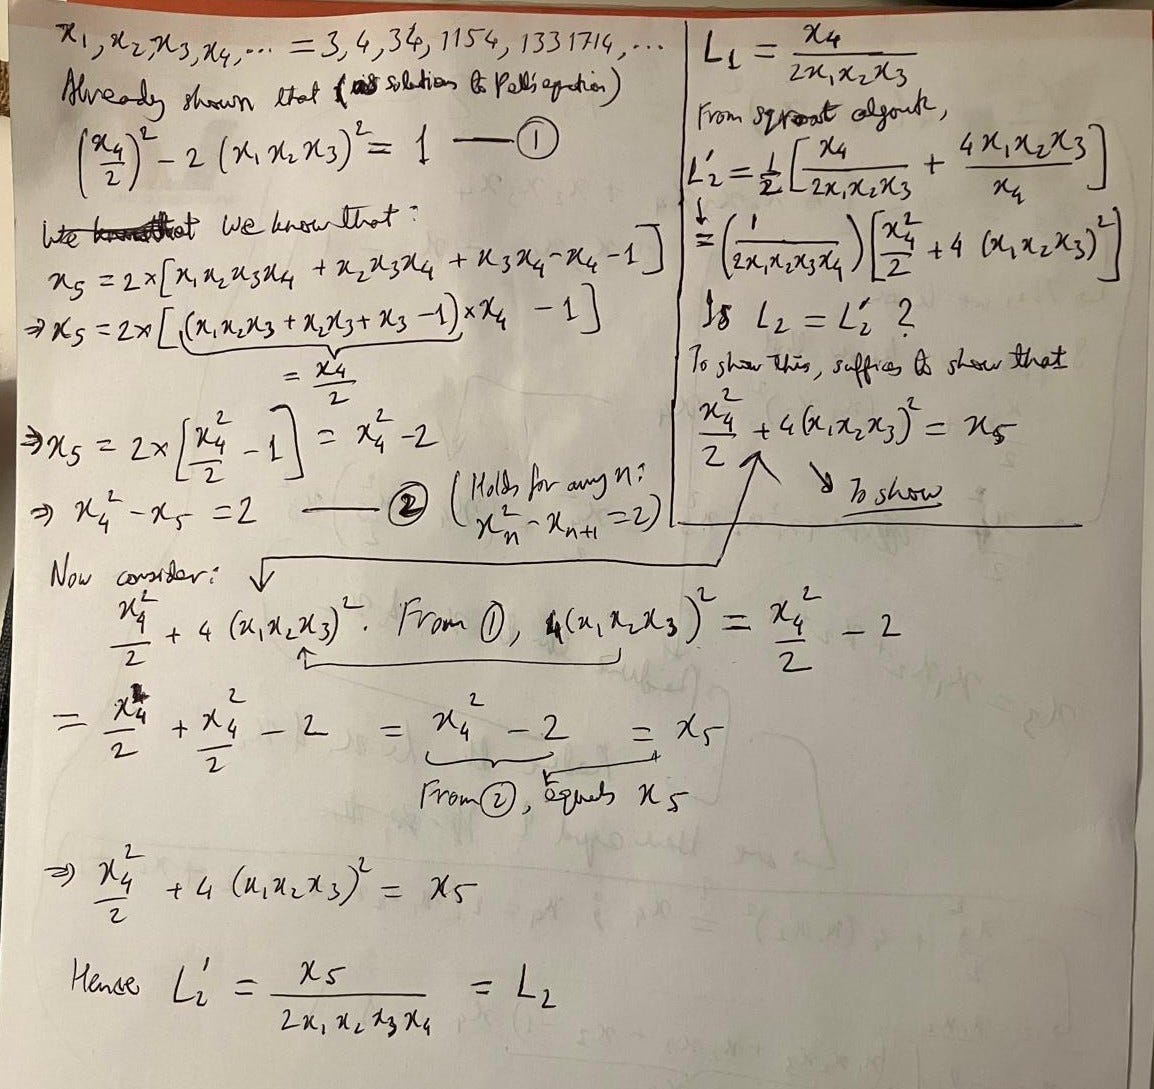 x₁, x₂, x₃, x₄, ... = 3, 4, 34, 1154, 1331714, ...
Already shown that (as solutions to Pell's equation)
(x₄/2)² - 2 (x₁ x₂ x₃)² = 1 — ①
We know that:
x₅ = 2 × [x₁x₂x₃x₄ + x₂x₃x₄ + x₃x₄ - x₄ - 1]
⇒ x₅ = 2 × [(x₁x₂x₃ + x₂x₃ + x₃ - 1) × x₄ - 1]
= x₄/2
⇒ x₅ = 2 × [x₄²/2 - 1] = x₄² - 2
⇒ x₄² - x₅ = 2 — ② (Holds for any n: xₙ² - xₙ₊₁ = 2)
L₁ = x₄/(2x₁x₂x₃)
From sqroot algorith,
L₂' = 1/2 [x₄/(2x₁x₂x₃) + 4x₁x₂x₃/x₄]
= (1/(2x₁x₂x₃x₄)) [x₄²/2 + 4 (x₁x₂x₃)²]
Is L₂ = L₂' ?
To show this, suffices to show that
x₄²/2 + 4(x₁x₂x₃)² = x₅
To show
Now consider:
x₄²/2 + 4 (x₁x₂x₃)². From ①, 4(x₁x₂x₃)² = x₄²/2 - 2
= x₄²/2 + x₄²/2 - 2 = x₄² - 2 = x₅
From ②, equals x₅
⇒ x₄²/2 + 4 (x₁x₂x₃)² = x₅
Hence L₂' = x₅/(2x₁x₂x₃x₄) = L₂